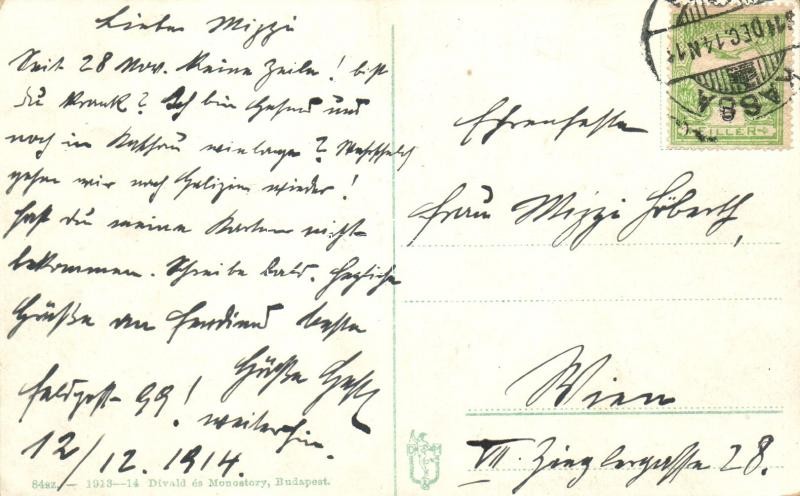 Liebe Mizzi
Seit 28 Nov. keine Zeile! bist
du krank? Ich bin Gesund und
noch in Kaschau wie lange?
gehen wir nach Galizien wieder!
hast du meine Karten nicht
bekommen. Schreibe bald. Herzliche
Grüße an Ferdinand beste
Grüße
Feldpost 99! weiterhin.
12/12. 1914.
84sz. — 1913—14 Divald és Monostory, Budapest.
914 DEC. 14
KASSA
FILLÉR
Frau Mizzi Höberth,
Wien
VII Zieglergasse 28.